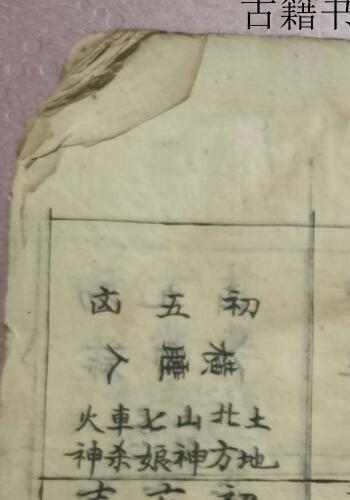 古籍书
初五凶
橫睡人
土地
北方
山神
七娘
車杀
火神